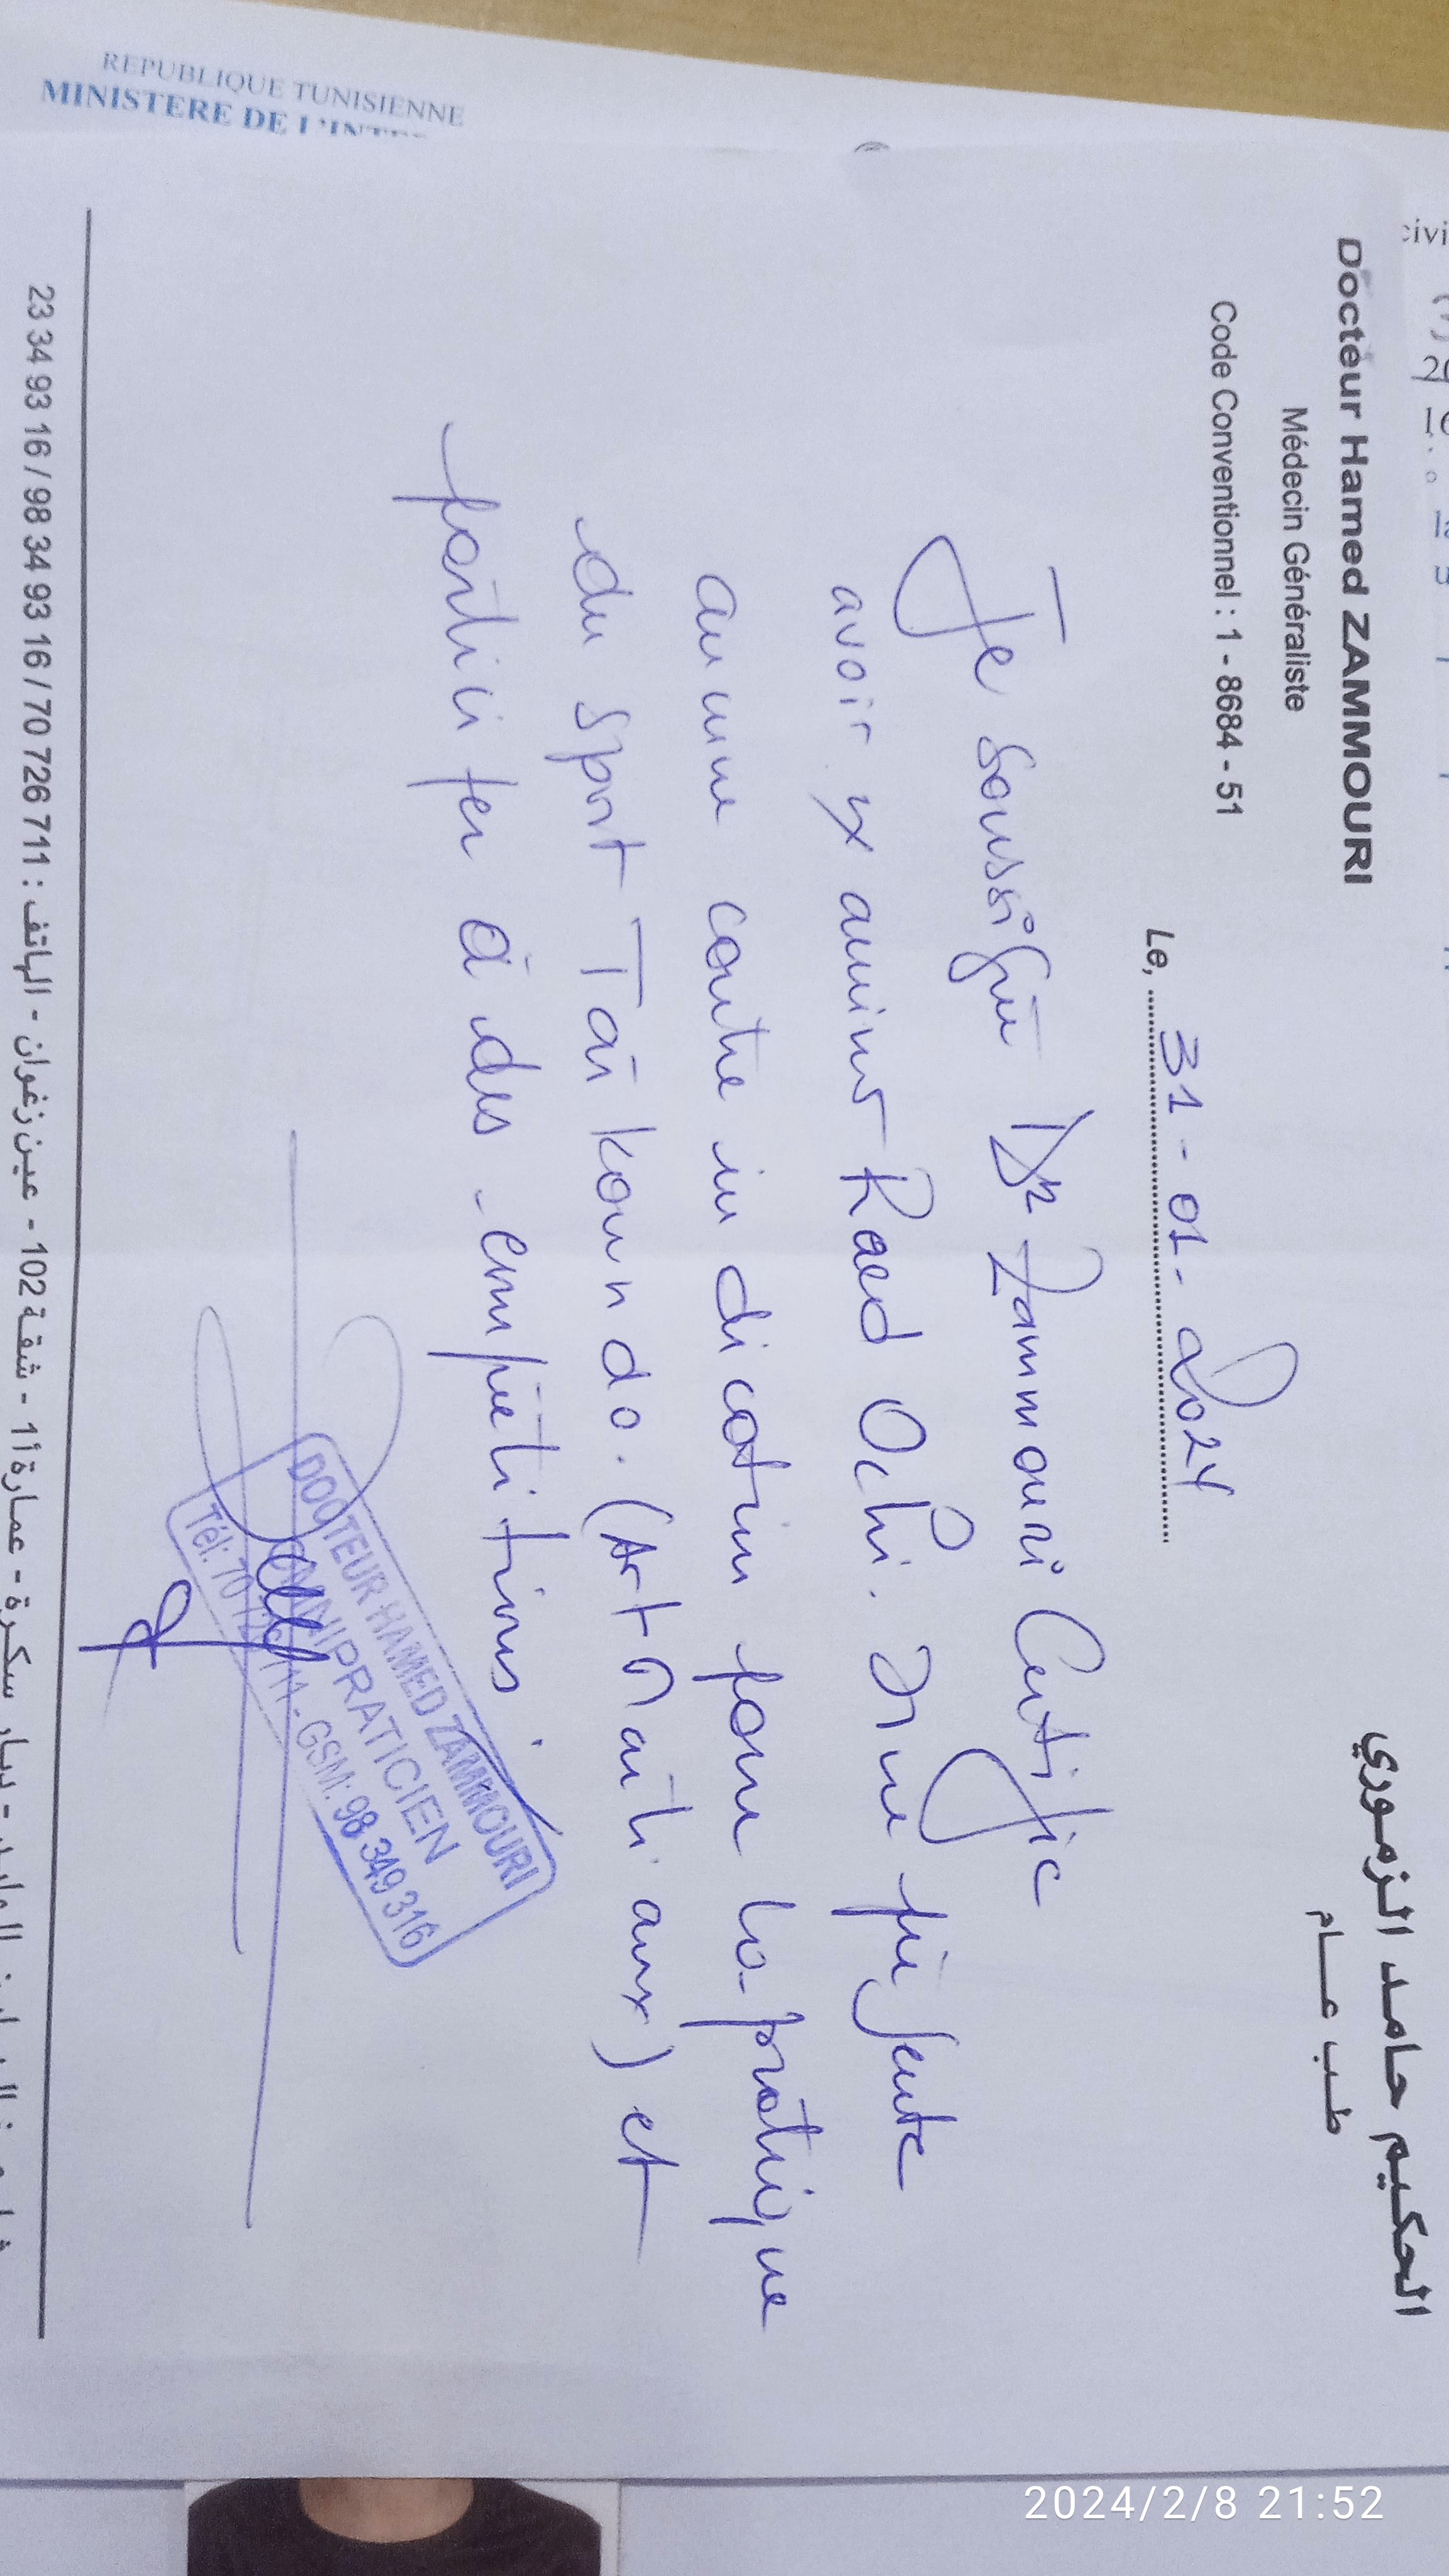 REPUBLIQUE TUNISIENNE
MINISTERE DE L'INTE
Docteur Hamed ZAMMOURI
Médecin Généraliste
Code Conventionnel : 1 - 8684 - 51
الحكيم حامد الزموري
طب عام
Le, 31 - 01 - 2024
Je soussigné Dr Zammouri Certific
avoir examiner Raed Ochi. One présente
aucune contre indication pour la pratique
du sport Taïkoundo. (Art Martiaux) et
participer à des compétitions.
DOCTEUR HAMED ZAMMOURI
OMNIPRATICIEN
Tél: 70 726 711 - GSM: 98 349 316
عمارة 11 - شقة 102 - عين زغوان - الهاتف : 23 34 93 16 / 98 34 93 16 / 70 726 711
2024/2/8 21:52